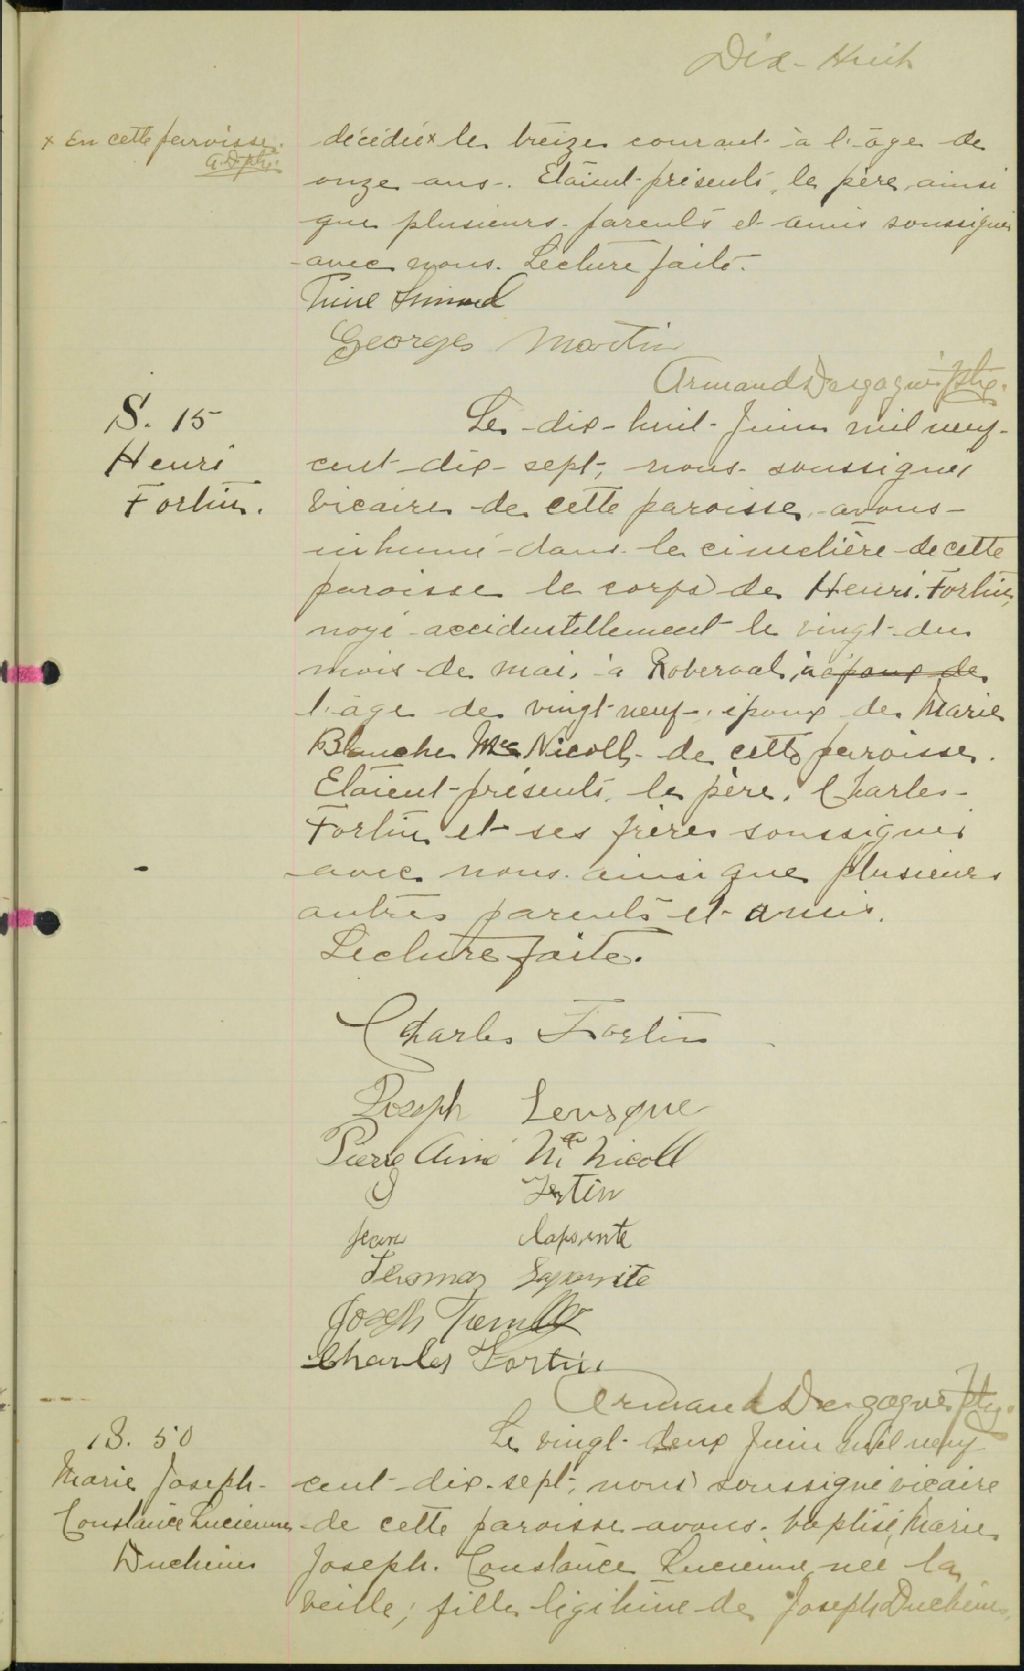 Dix-Huit
x En cette paroisse.
A.D. ptre.
décédée x le treize courant à l'âge de
onze ans. Etaient présents, le père, ainsi
que plusieurs parents et amis soussignés
avec nous. Lecture faite.
Simard
Georges Martin
Armand Dargagnè ptre.
S. 15
Henri
Fortin.
Le dix-huit Juin mil neuf-
cent-dix-sept, nous soussigné
vicaire de cette paroisse, avons
inhumé dans le cimetière de cette
paroisse le corps de Henri Fortin,
noyé accidentellement le vingt du
mois de mai, à Roberval, à époux de
l'âge de vingt-neuf, époux de Marie
Blanche McNicoll, de cette paroisse.
Etaient présents, le père, Charles
Fortin et ses frères soussignés
avec nous ainsi que plusieurs
autres parents et amis.
Lecture faite.
Charles Fortin
Joseph Levsque
Pierre Aimé Mc Nicoll
J Fortin
Jean Lapointe
Thomas Lapointe
Joseph Tremblay
Charles Fortin
Armand Dargagnè ptre.
B. 50
Marie Joseph-
Constance Lucienne
Duchène
Le vingt-deux Juin mil neuf
cent-dix-sept, nous soussigné vicaire
de cette paroisse avons baptisé, Marie
Joseph Constance Lucienne, née la
veille, fille légitime de Joseph Duchène,